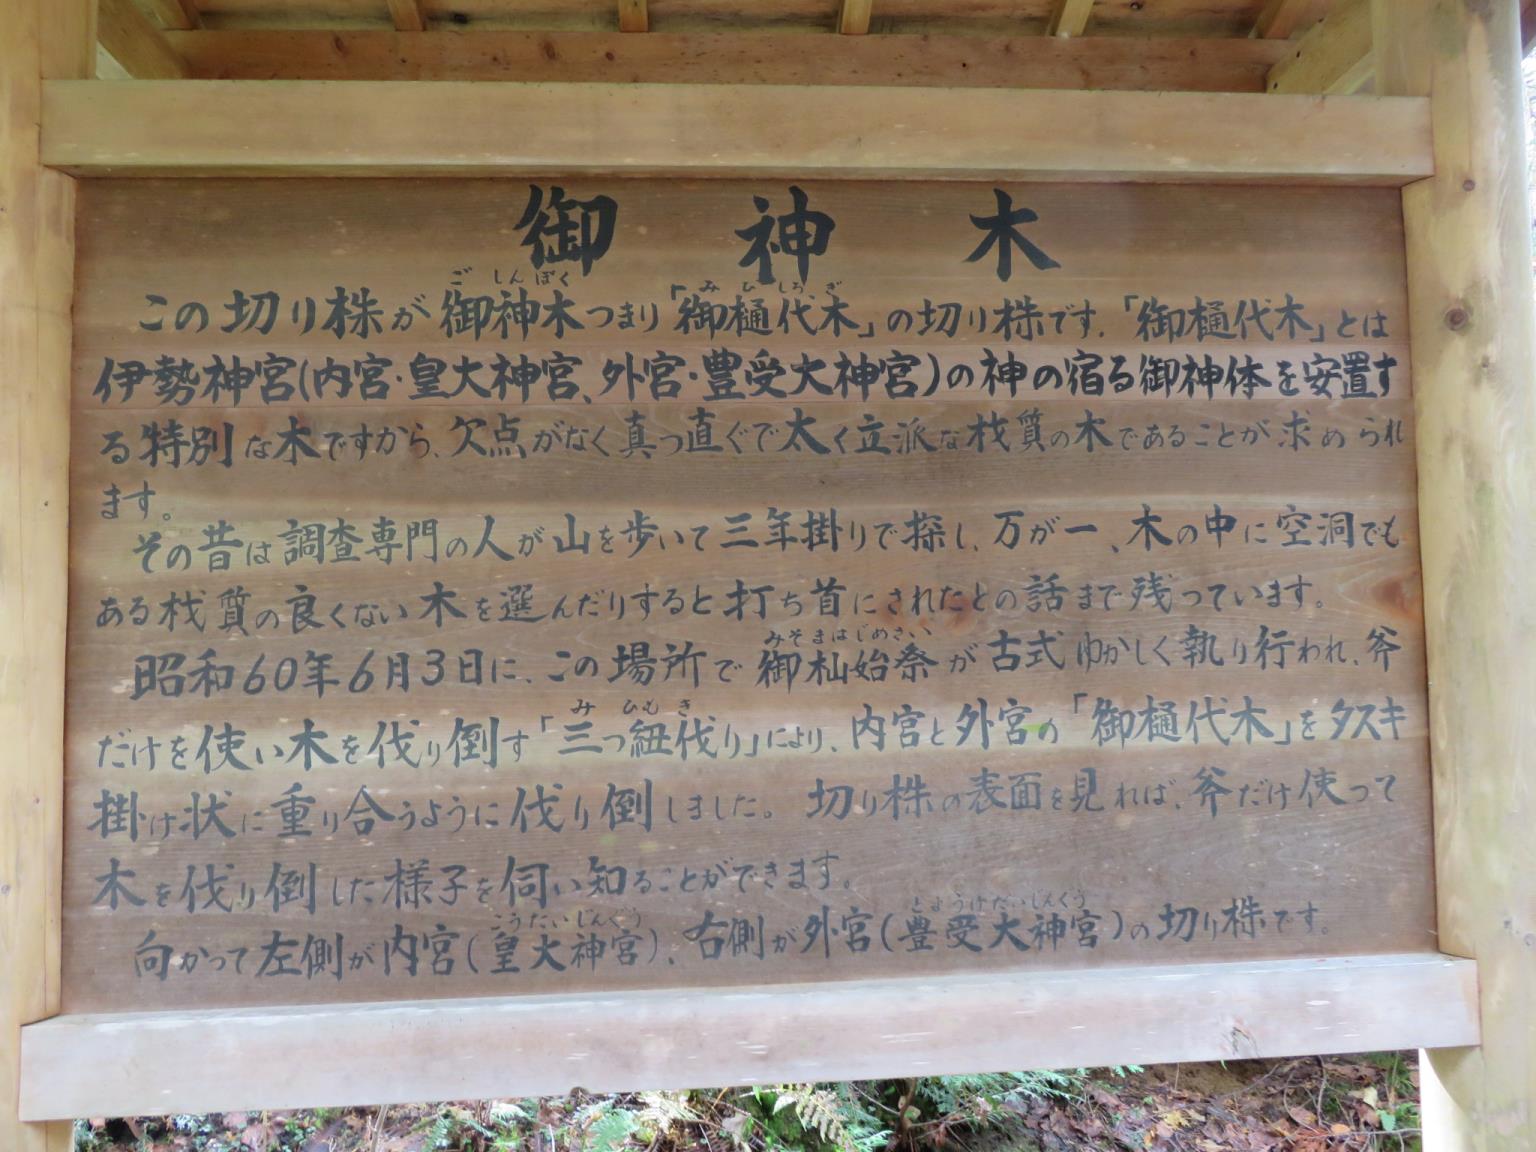 御神木
ごしんぼく みひしろぎ
この切り株が御神木つまり「御樋代木」の切り株です。「御樋代木」とは
伊勢神宮(内宮・皇大神宮、外宮・豊受大神宮)の神の宿る御神体を安置す
る特別な木ですから、欠点がなく真っ直ぐで太く立派な材質の木であることが求められ
ます。
その昔は調査専門の人が山を歩いて三年掛りで探し、万が一、木の中に空洞でも
ある材質の良くない木を選んだりすると打ち首にされたとの話まで残っています。
みそまはじめさい
昭和60年6月3日に、この場所で御杣始祭が古式ゆかしく執り行われ、斧
みひもぎ
だけを使い木を伐り倒す「三つ紐伐り」により、内宮と外宮の「御樋代木」をタスキ
掛け状に重り合うように伐り倒しました。切り株の表面を見れば、斧だけ使って
木を伐り倒した様子を伺い知ることができます。
こうたいじんぐう とようけだいじんぐう
向かって左側が内宮(皇大神宮)、右側が外宮(豊受大神宮)の切り株です。